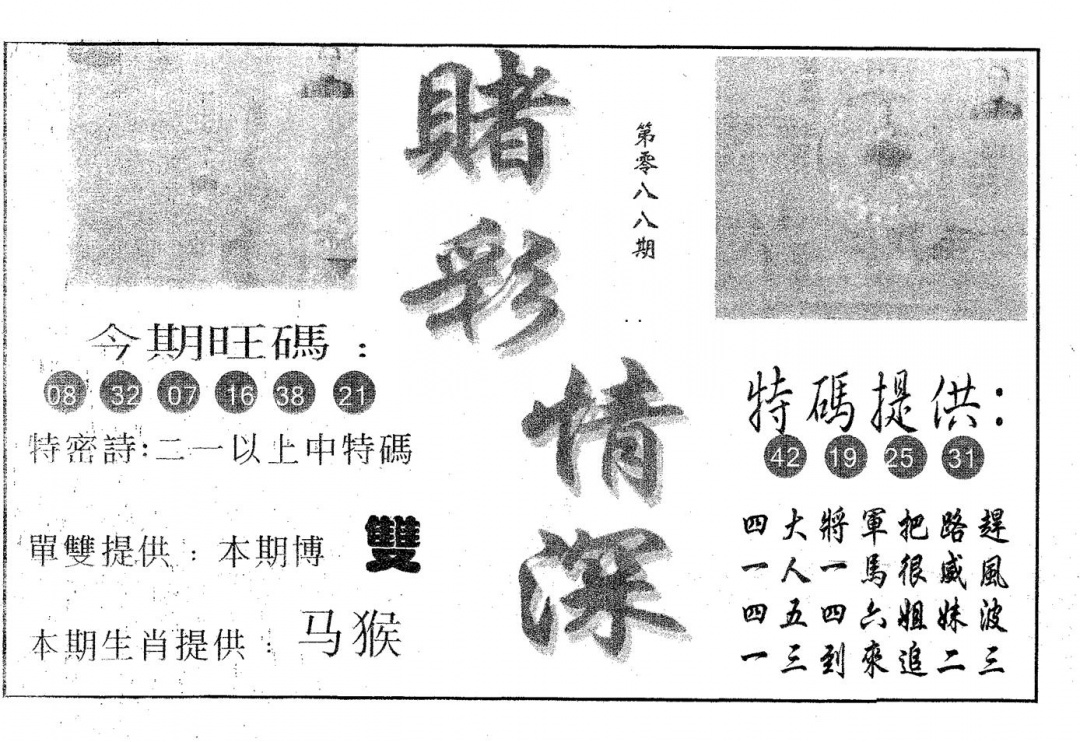 賭彩情深
第零八八期
今期旺碼：
08 32 07 16 38 21
特密詩：二一以上中特碼
單雙提供：本期博 雙
本期生肖提供：马猴
特碼提供：
42 19 25 31
四大將軍把路趕
一人一馬很威風
四五四六姐妹波
一三到來追二三